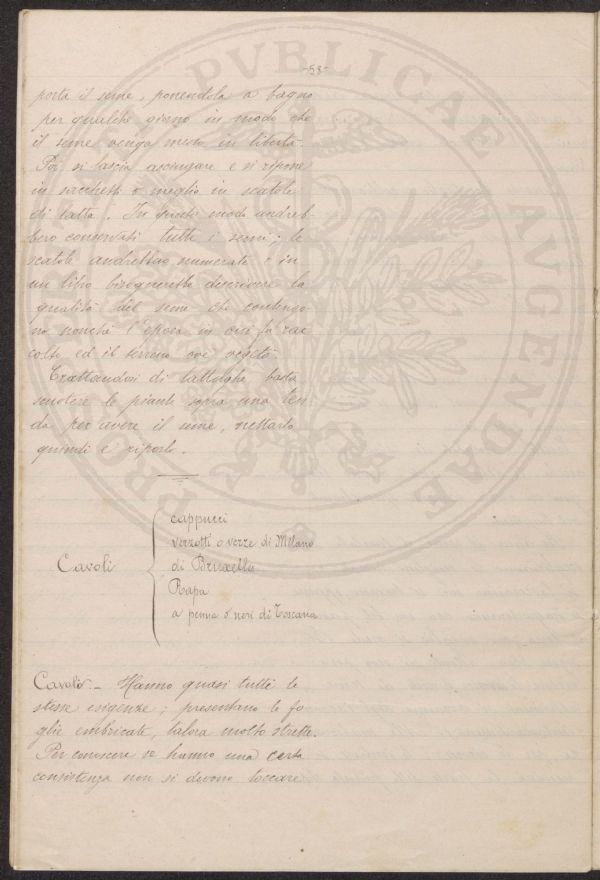 -58-
porta il seme, ponendola a bagno
per qualche giorno in modo che
il seme venga messo in libertà.
Poi si lascia asciugare e si ripone
in sacchetti o meglio in scatole
di latta. In questo modo andreb-
bero conservati tutti i semi; le
scatole andrebbero numerate e in
un libro bisognerebbe descrivere la
qualità del seme che contengo-
no nonchè l'epoca in cui fu rac
colto ed il terreno ove vegetò.
Trattandosi di lattughe basta
scuotere le piante sopra una ten-
da per avere il seme, nettarlo
quindi e riporlo.
Cavoli
cappucci
verzotti o verze di Milano
di Bruxelles
Rapa
a penna o neri di Toscana
Cavoli - Hanno quasi tutti le
stesse esigenze; presentano le fo
glie embricate, talora molto strette.
Per conoscere se hanno una certa
consistenza non si devono toccare
PRO BONO PVBLICAE AVGENDAE